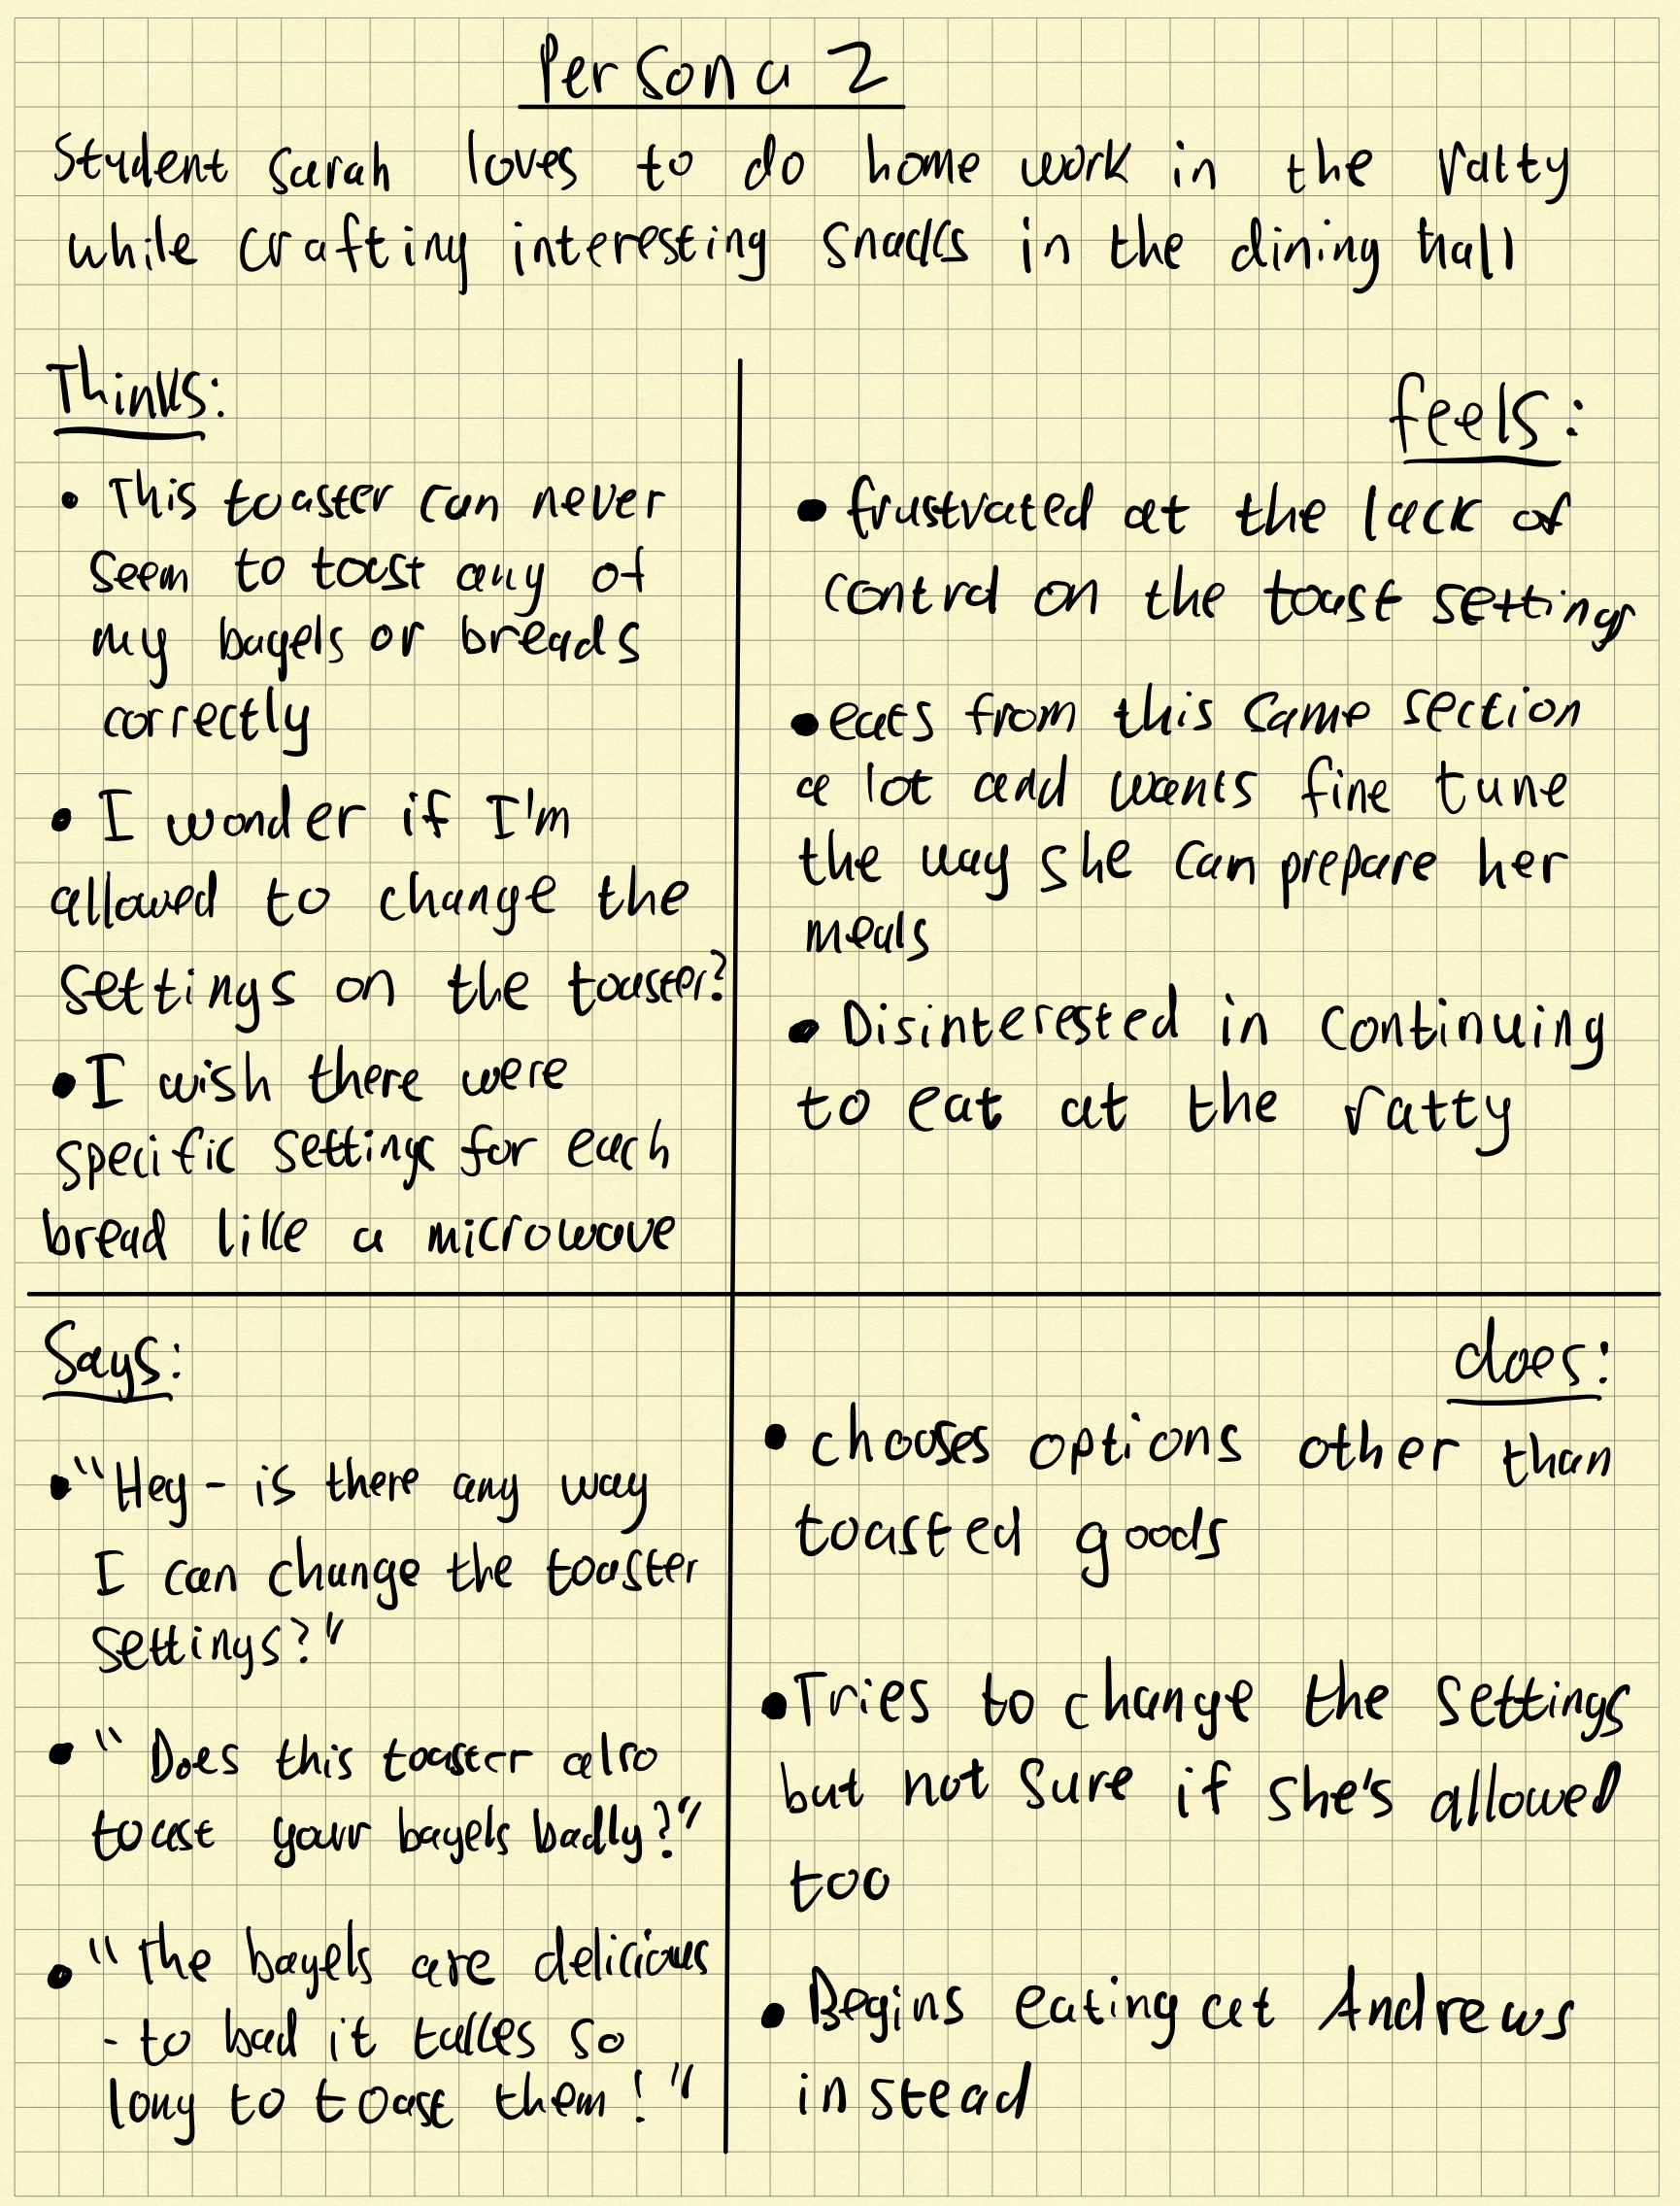 Persona 2
Student Sarah loves to do home work in the ratty
while crafting interesting snacks in the dining hall
Thinks:
• This toaster can never
seem to toast any of
my bagels or breads
correctly
• I wonder if I'm
allowed to change the
settings on the toaster?
• I wish there were
specific settings for each
bread like a microwave
feels:
• frustrated at the lack of
control on the toast settings
• eats from this same section
a lot and wants fine tune
the way she can prepare her
meals
• Disinterested in continuing
to eat at the ratty
Says:
• "Hey - is there any way
I can change the toaster
settings?"
• "Does this toaster also
toast your bagels badly?"
• "The bagels are delicious
- to bad it takes so
long to toast them!"
does:
• chooses options other than
toasted goods
• Tries to change the settings
but not sure if she's allowed
too
• Begins eating at Andrews
instead